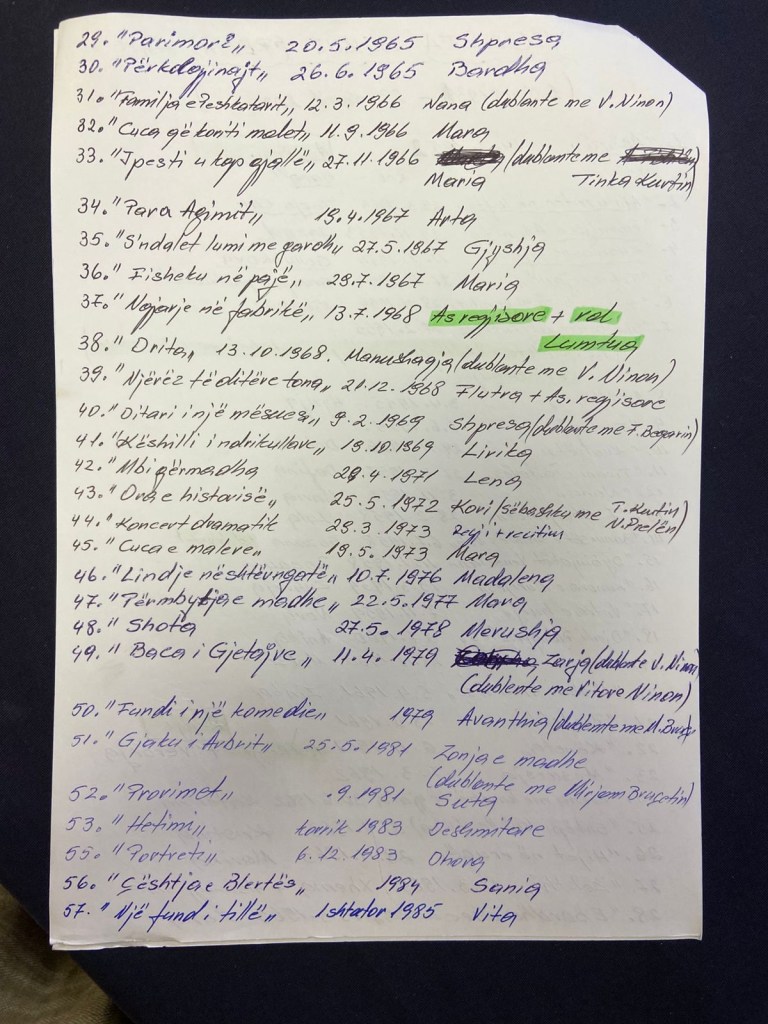 29. "Parimorë„ 20.5.1965 Shpresa
30. "Përkolgjinajt„ 26.6.1965 Bardha
31. "Familja e Peshkatarit„ 12.3.1966 Nana (dublante me V. Ninon)
32. "Cuca që kariti malet„ 11.9.1966 Mara
33. "I pesti u kap gjallë„ 27.11.1966 (dublante me
Maria Tinka Kurtin)
34. "Para Agimit„ 19.4.1967 Arta
35. "S'ndalet lumi me gardh„ 27.5.1967 Gjyshja
36. "Fisheku në pajë„ 29.7.1967 Maria
37. "Ngjarje në fabrikë„ 13.7.1968 As regjisore + rol
Lumtua
38. "Drita„ 13.10.1968. Manushaqja (dublante me V. Ninon)
39. "Njerëz të ditëve tona„ 21.12.1968 Flutra + As. regjisore
40. "Ditari i një mësuesi„ 9.2.1969 Shpresa (dublante me F. Begarin)
41. "Këshilli i ndrikullave„ 19.10.1969 Lirika
42. "Mbi gërmadha 29.4.1971 Lena
43. "Ora e historisë„ 25.5.1972 Kori (sëbashku me T. Kurtin
N. Prelën)
44. "Koncert dramatik 29.3.1973 regji + recitim
45. "Cuca e maleve„ 19.5.1973 Mara
46. "Lindje në shtëvngatë„ 10.7.1976 Madalena
47. "Përmbytja e madhe„ 22.5.1977 Mara
48. "Shota 27.5.1978 Merushja
49. "Baca i Gjetajve„ 11.4.1979 Zarja (dublante V. Ninon)
(dublente me Vitore Ninon)
50. "Fundi i një komedie„ 1979 Avanthia (dublemte me M. Bruçe
51. "Gjaku i Arbrit„ 25.5.1981 Zonja e madhe
(dublante me Mirjam Bruçetin)
52. "Provimet„ .9.1981 Suta
53. "Hetimi„ korrik 1983 Deshmitare
55. "Portreti„ 6.12.1983 Ohora
56. "Çështja e Blertës„ 1984 Sania
57. "Një fund i tillë„ 1 shtator 1985 Vita